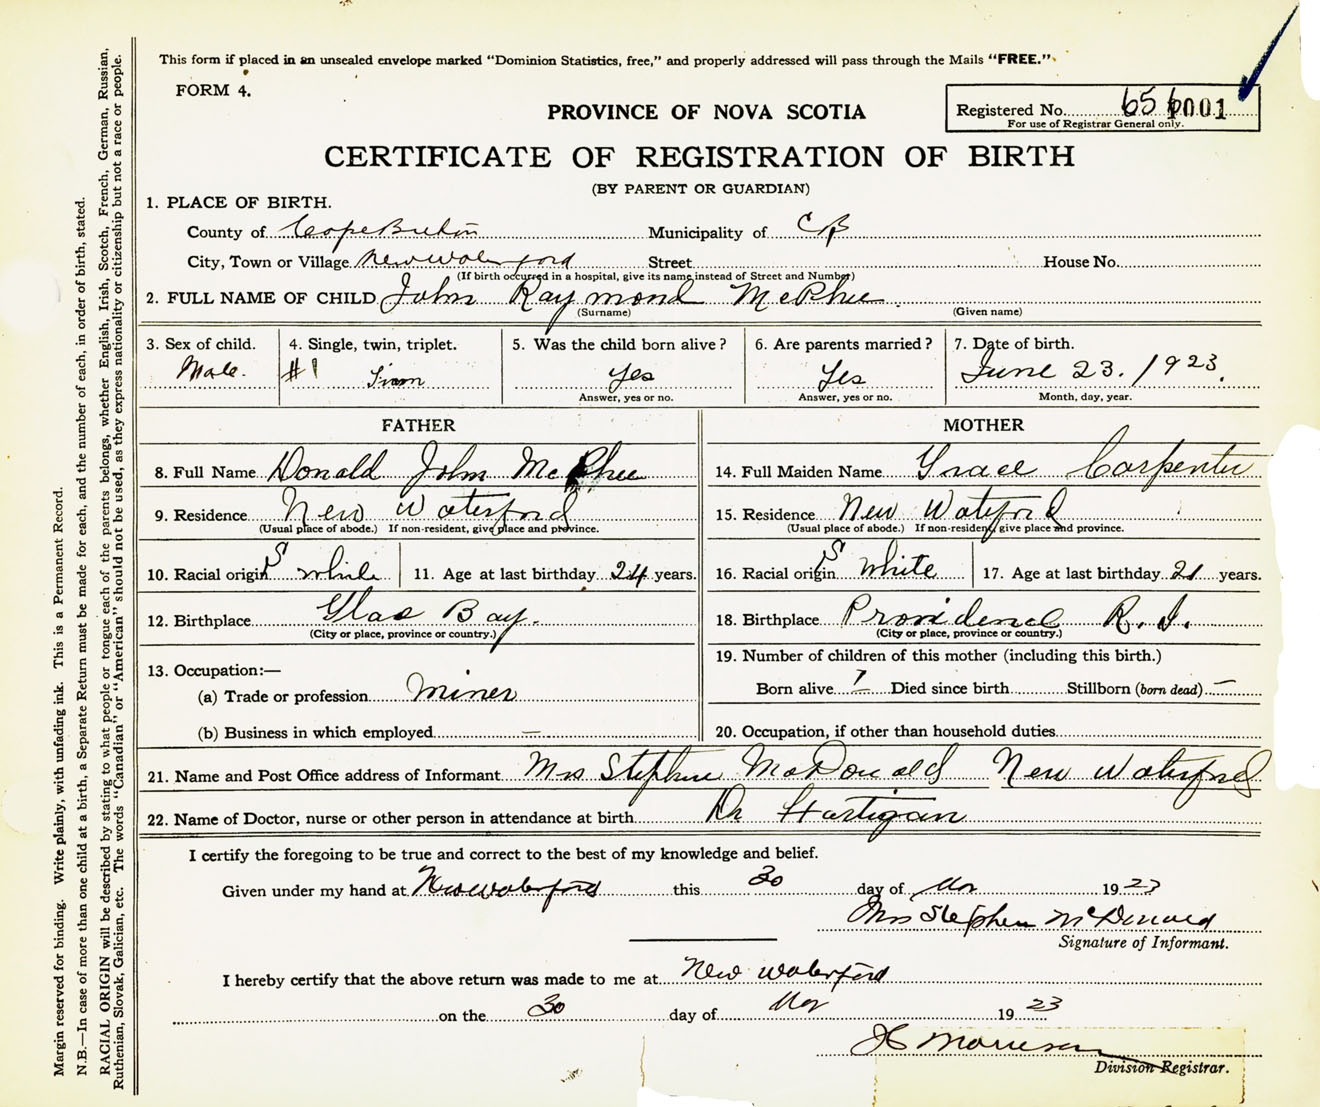 This form if placed in an unsealed envelope marked "Dominion Statistics, free," and properly addressed will pass through the Mails "FREE."
FORM 4.
PROVINCE OF NOVA SCOTIA
Registered No. 65 6001
For use of Registrar General only.
CERTIFICATE OF REGISTRATION OF BIRTH
(BY PARENT OR GUARDIAN)
1. PLACE OF BIRTH.
County of Cape Breton Municipality of CB
City, Town or Village New Waterford Street House No.
(If birth occurred in a hospital, give its name instead of Street and Number)
2. FULL NAME OF CHILD John Raymond McPhee
(Surname) (Given name)
3. Sex of child. 4. Single, twin, triplet. 5. Was the child born alive? 6. Are parents married? 7. Date of birth.
Male. #1 Yes Yes June 23. 1923.
Answer, yes or no. Answer, yes or no. Month, day, year.
FATHER MOTHER
8. Full Name Donald John McPhee 14. Full Maiden Name Grace Carpenter
9. Residence New Waterford 15. Residence New Waterford
(Usual place of abode.) If non-resident, give place and province. (Usual place of abode.) If non-resident, give place and province.
10. Racial origin S white 11. Age at last birthday 24 years. 16. Racial origin S white 17. Age at last birthday 21 years.
12. Birthplace Glace Bay. 18. Birthplace Providence R. I.
(City or place, province or country.) (City or place, province or country.)
13. Occupation:— 19. Number of children of this mother (including this birth.)
(a) Trade or profession Miner Born alive Died since birth Stillborn (born dead) —
(b) Business in which employed — 20. Occupation, if other than household duties
21. Name and Post Office address of Informant Mrs Stephen McDonald New Waterford
22. Name of Doctor, nurse or other person in attendance at birth Dr Hartigan
I certify the foregoing to be true and correct to the best of my knowledge and belief.
Given under my hand at New Waterford this 30 day of Nov 1923
Mrs Stephen McDonald
Signature of Informant.
I hereby certify that the above return was made to me at New Waterford
on the 30 day of Nov 1923
Division Registrar.
Margin reserved for binding. Write plainly, with unfading ink. This is a Permanent Record.
N.B.—In case of more than one child at a birth, a Separate Return must be made for each, and the number of each, in order of birth, stated.
RACIAL ORIGIN will be described by stating to what people or tongue each of the parents belongs, whether English, Irish, Scotch, French, German, Russian,
Ruthenian, Slovak, Galician, etc. The words "Canadian" or "American" should not be used, as they express nationality or citizenship but not a race or people.